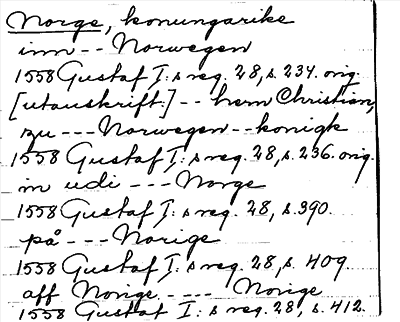 Norge, konungarike
inn -- Norwegen
1558 Gustaf I:s reg. 28, s. 234. orig.
[utanskrift:] -- hern Christian,
zu --- Norwegen -- konigk
1558 Gustaf I:s reg. 28, s. 236. orig.
in udi --- Norge
1558 Gustaf I:s reg. 28, s. 390.
på --- Norige
1558 Gustaf I:s reg. 28, s. 409
aff Norige ---- Norige
1558 Gustaf I:s reg. 28, s. 412.